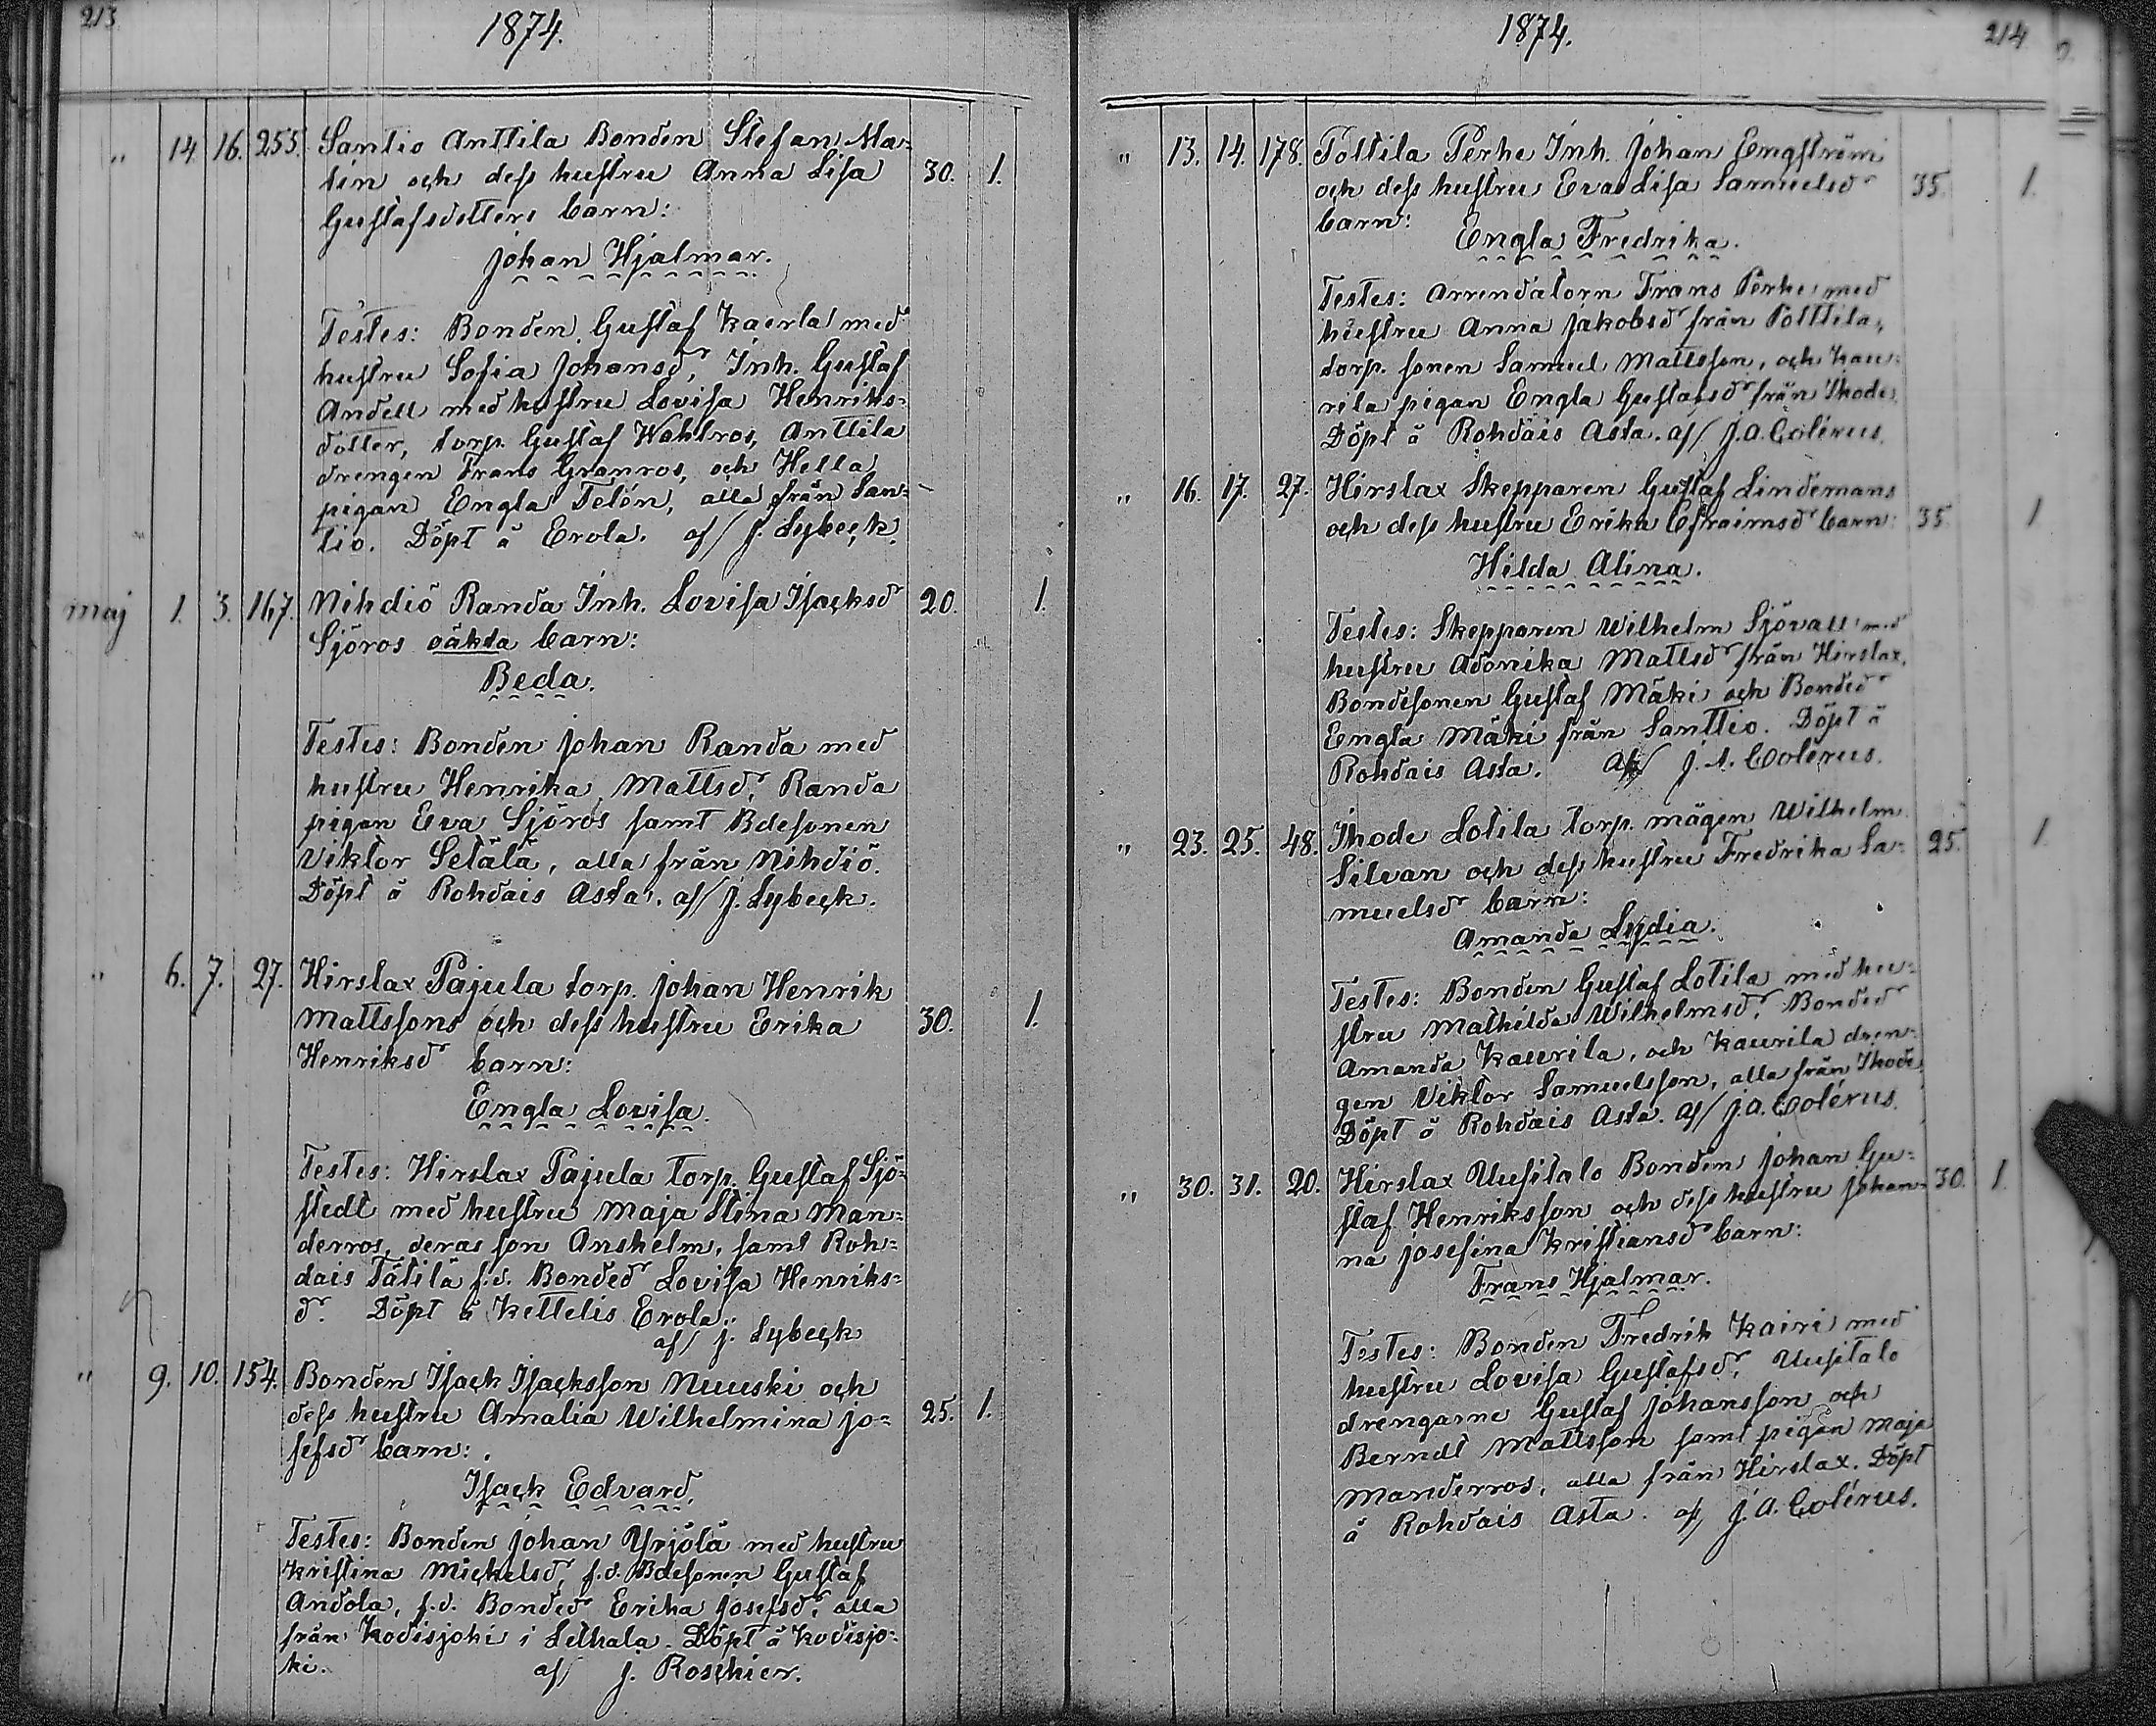 213.
1874.
" 14. 16. 255. Santio Anttila Bonden Stefan Ma-
lin och dess hustru Anna Lisa 30. 1.
Gustafsdotters barn:
Johan Hjalmar.
Testes: Bonden Gustaf Kaerla med
hustru Sofia Johansdr, Inh. Gustaf
Andell med hustru Lovisa Henriks-
dotter, torp. Gustaf Wahlros, Anttila
drengen Frans Granros, och Hella
pigan Engla Telón, alla från San-
tio. Döpt å Erola. af/ J. Lybeck.
maj 1. 3. 167. Nihdiö Randa Inh. Lovisa Isacksdr 20. 1.
Sjöros oäkta barn:
Beda.
Testes: Bonden Johan Randa med
hustru Henrika Mattsdr, Randa
pigan Eva Sjöros samt Bdesonen
Viktor Setälä, alla från Nihdiö.
Döpt å Rohdais Asta. af/ J. Lybeck.
" 6. 7. 27. Hirslax Pajula torp. Johan Henrik
Mattssons och dess hustru Erika 30. 1.
Henriksdr barn:
Engla Lovisa.
Testes: Hirslax Pajula torp. Gustaf Sjö-
stedt med hustru Maja Stina Man-
derros, deras son Anshelm, samt Roh-
dais Tätilä f.d. Bondedr Lovisa Henriks-
dr. Döpt å Kettelis Erola.
af/ J. Lybeck
" 9. 10. 154. Bonden Isack Isacksson Nuuski och
dess hustru Amalia Wilhelmina Jo- 25. 1.
sefsdr barn:
Isack Edvard.
Testes: Bonden Johan Yrjölä med hustru
Kristina Mickelsdr, f.d. Bdesonen Gustaf
Andola, f.d. Bondedr Erika Josefsdr, alla
från Kodisjoki i Lethala. Döpt å Kodisjo-
ki. af/ J. Roschier.
1874.
214.
" 13. 14. 178. Polttila Perhe Inh. Johan Engström
och dess hustru Eva Lisa Samuelsdr 35. 1.
barn:
Engla Fredrika.
Testes: Arrendatorn Frans Perhe med
hustru Anna Jakobsdr från Polttila,
torp. sonen Samuel Mattsson, och Kau-
rila pigan Engla Gustafsdr från Ihode.
Döpt å Rohdais Asta. af/ J. A. Colérus.
" 16. 17. 27. Hirslax Skepparen Gustaf Lindemans
och dess hustru Erika Efraimsdr barn: 35. 1
Hilda Alina.
Testes: Skepparen Wilhelm Sjövall med
hustru Adonika Mattsdr från Hirslax,
Bondesonen Gustaf Mäki och Bondedr
Engla Mäki från Santtio. Döpt å
Rohdais Asta. af/ J. A. Colérus.
" 23. 25. 48. Ihode Lotila torp. mågen Wilhelm
Silvan och dess hustru Fredrika Sa- 25. 1.
muelsdr barn:
Amanda Lydia.
Testes: Bonden Gustaf Lotila med hu-
stru Mathilda Wilhelmsdr, Bondedr
Amanda Kaurila, och Kaurila dren-
gen Viktor Samuelsson, alla från Ihode
Döpt å Rohdais Asta. af/ J. A. Colérus.
" 30. 31. 20. Hirslax Uusitalo Bonden Johan Gu-
staf Henriksson och dess hustru Johan- 30. 1.
na Josefina Kristiansdr barn:
Frans Hjalmar.
Testes: Bonden Fredrik Kairi med
hustru Lovisa Gustafsdr, Uusitalo
drengarne Gustaf Johansson och
Berndt Mattsson samt pigan Maja
Manderros, alla från Hirslax. Döpt
å Rohdais Asta. af, J. A. Colérus.